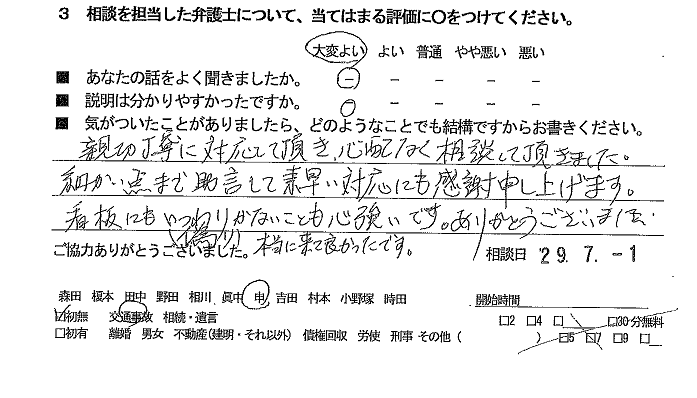 3 相談を担当した弁護士について、当てはまる評価に〇をつけてください。
大変よい よい 普通 やや悪い 悪い
■ あなたの話をよく聞きましたか。 － － － － －
■ 説明は分かりやすかったですか。 〇 － － － －
■ 気がついたことがありましたら、どのようなことでも結構ですからお書きください。
親切丁寧に対応して頂き、心配なく相談して頂きました。
細かい点まで助言して素早い対応にも感謝申し上げます。
看板にもいつわりがないことも心強いです。ありがとうございました。
(偽り)
本当に来て良かったです。
ご協力ありがとうございました。
相談日 '29.7.-1
森田 榎本 田中 野田 相川 眞中 申 吉田 村本 小野塚 時田
開始時間
☑初無 交通事故 相続・遺言
□2 □4 □__ □30分無料
□初有 離婚 男女 不動産(建明・それ以外) 債権回収 労使 刑事 その他 ( ) □5 □7 □9 □__